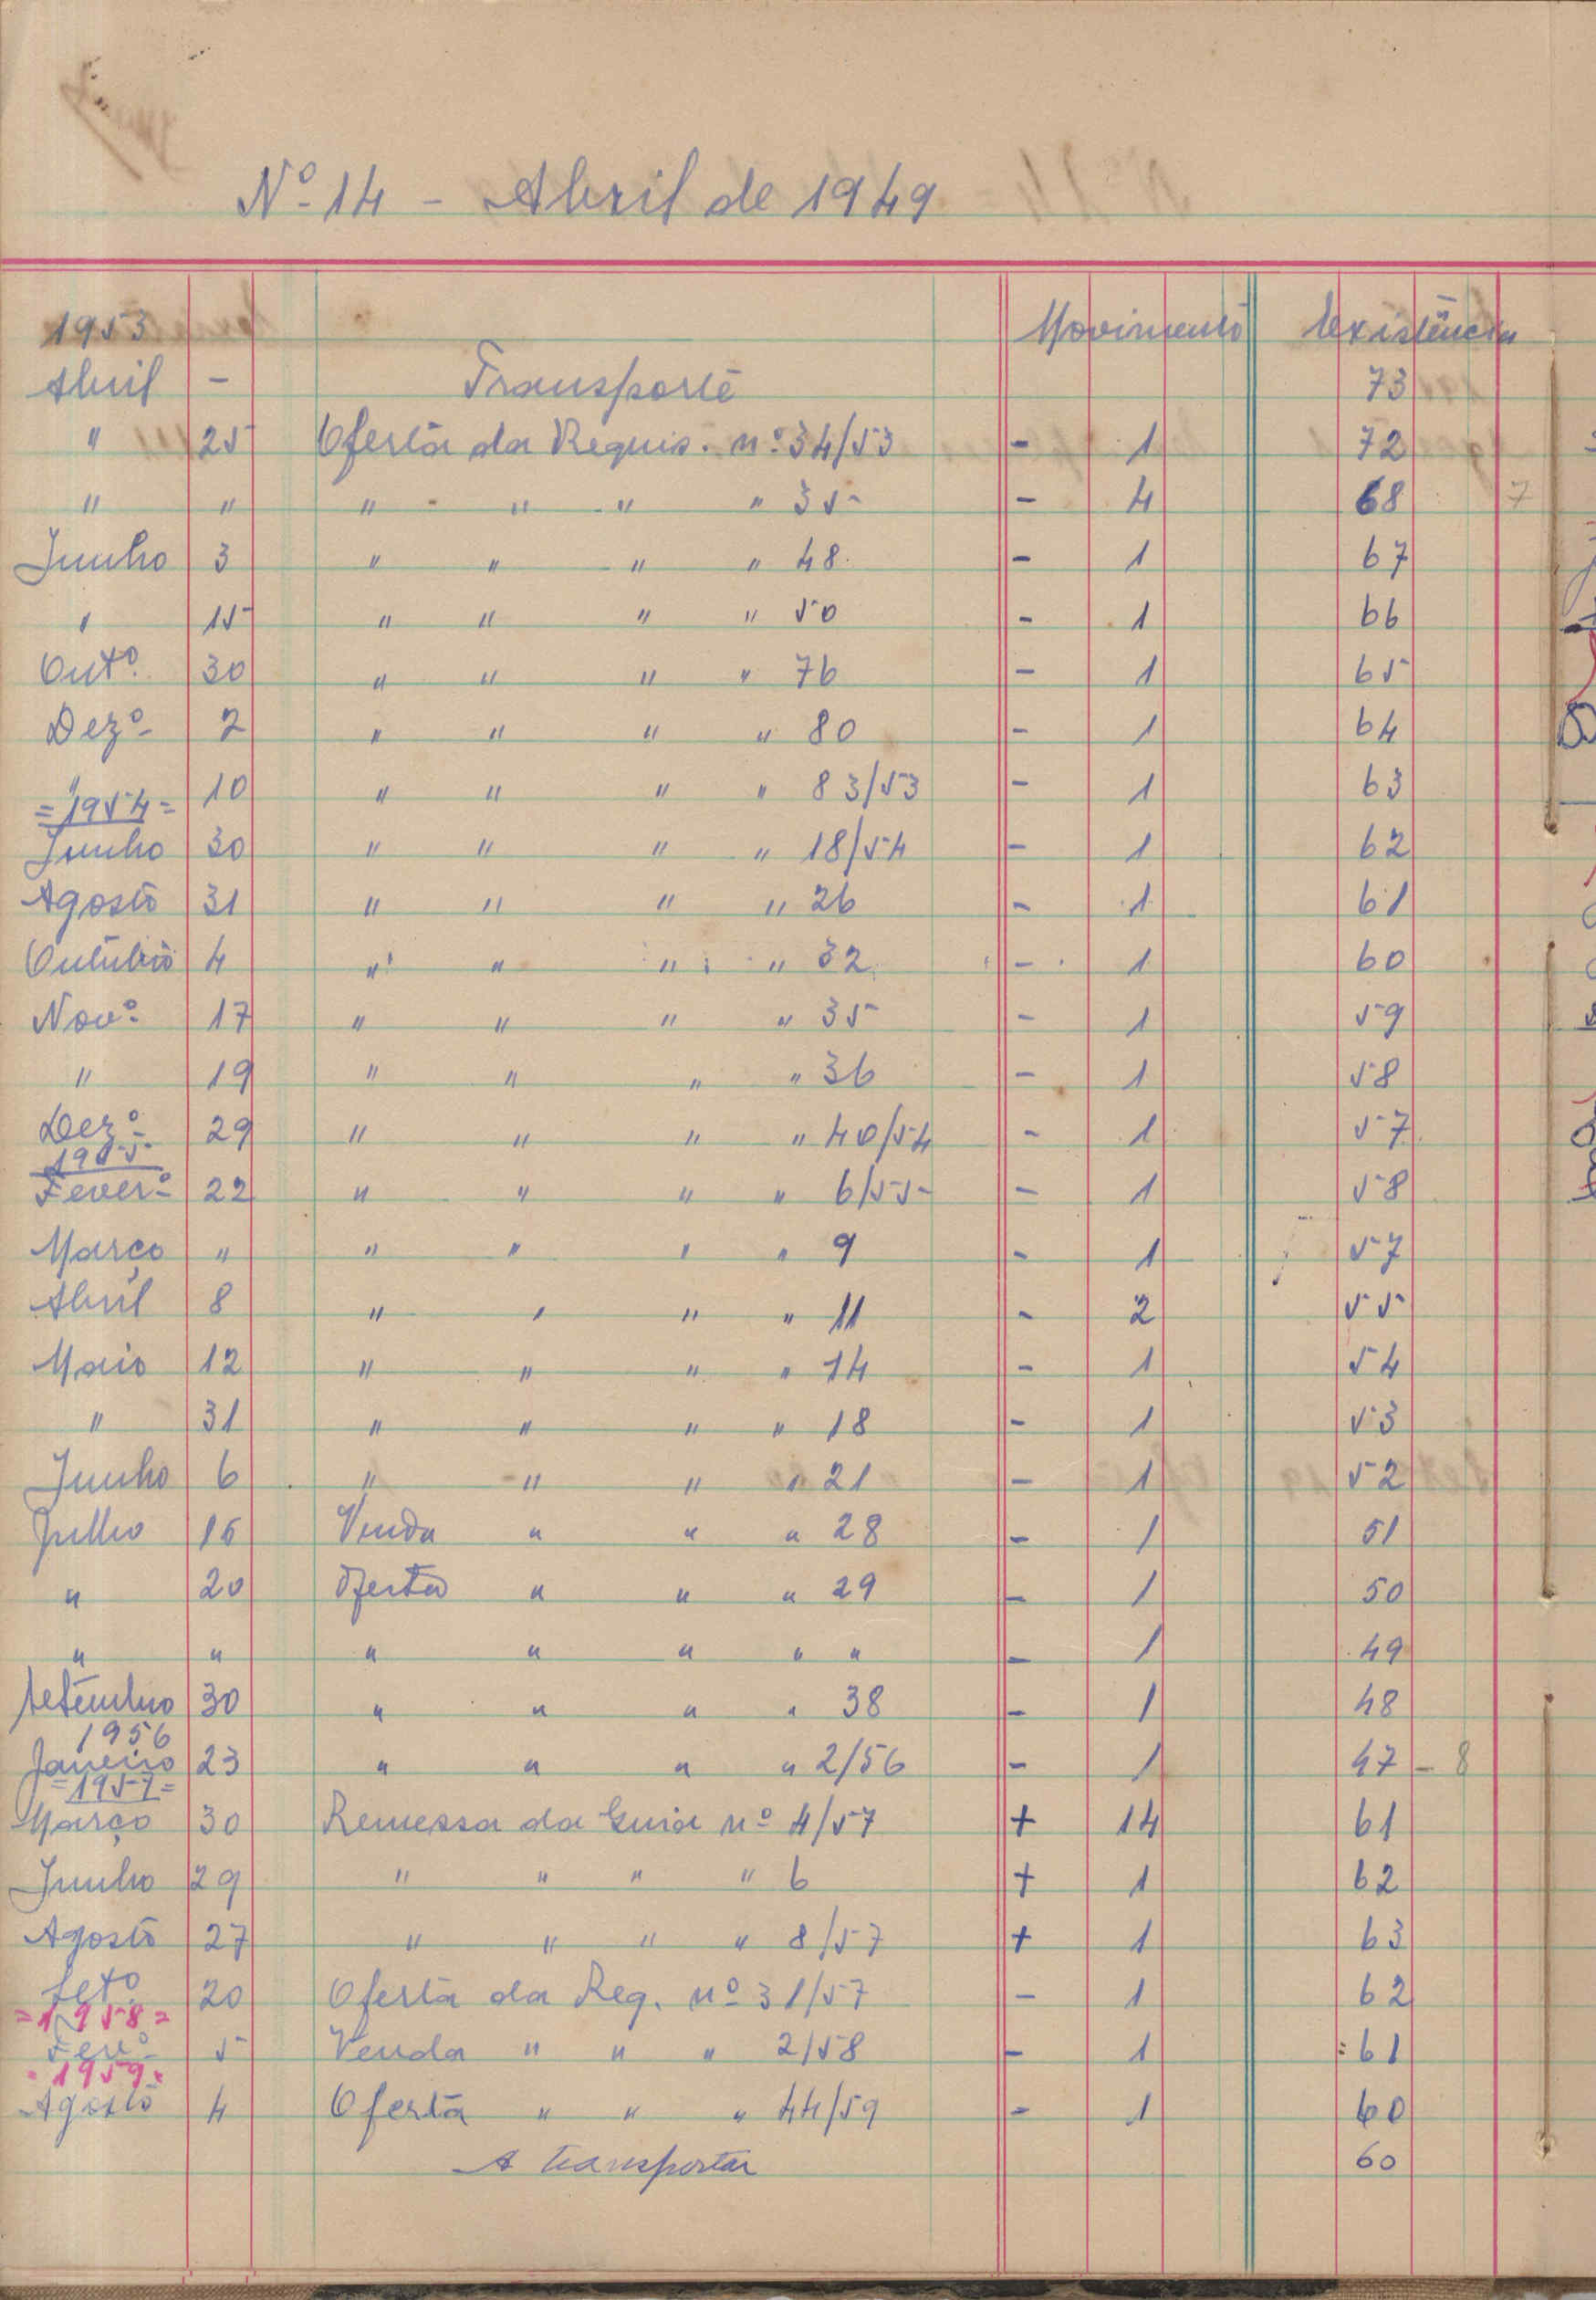 Nº 14 - Abril de 1949
1953 Movimento Existência
Abril - Transporte 73
" 25 Oferta da Requis. nº 34/53 - 1 72
" " " " " " 35 - 4 68 7
Junho 3 " " " " 48 - 1 67
" 15 " " " " 50 - 1 66
Outº 30 " " " " 76 - 1 65
Dezº 2 " " " " 80 - 1 64
" 10 " " " " 83/53 - 1 63
=1954=
Junho 30 " " " " 18/54 - 1 62
Agosto 31 " " " " 26 - 1 61
Outubro 4 " " " " 32 - 1 60
Novº 17 " " " " 35 - 1 59
" 19 " " " " 36 - 1 58
Dezº 29 " " " " 40/54 - 1 57
1955
Feverº 22 " " " " 6/55 - 1 58
Março " " " " " 9 - 1 57
Abril 8 " " " " 11 - 2 55
Maio 12 " " " " 14 - 1 54
" 31 " " " " 18 - 1 53
Junho 6 " " " " 21 - 1 52
Julho 16 Venda " " " 28 - 1 51
" 20 Oferta " " " 29 - 1 50
" " " " " " " - 1 49
Setembro 30 " " " " 38 - 1 48
1956
Janeiro 23 " " " " 2/56 - 1 47 - 8
=1957=
Março 30 Remessa da Guia nº 4/57 + 14 61
Junho 29 " " " " 6 + 1 62
Agosto 27 " " " " 8/57 + 1 63
Setº 20 Oferta da Req. nº 31/57 - 1 62
=1958=
Fevº 5 Venda " " " 2/58 - 1 61
=1959=
Agosto 4 Oferta " " " 44/59 - 1 60
A transportar 60